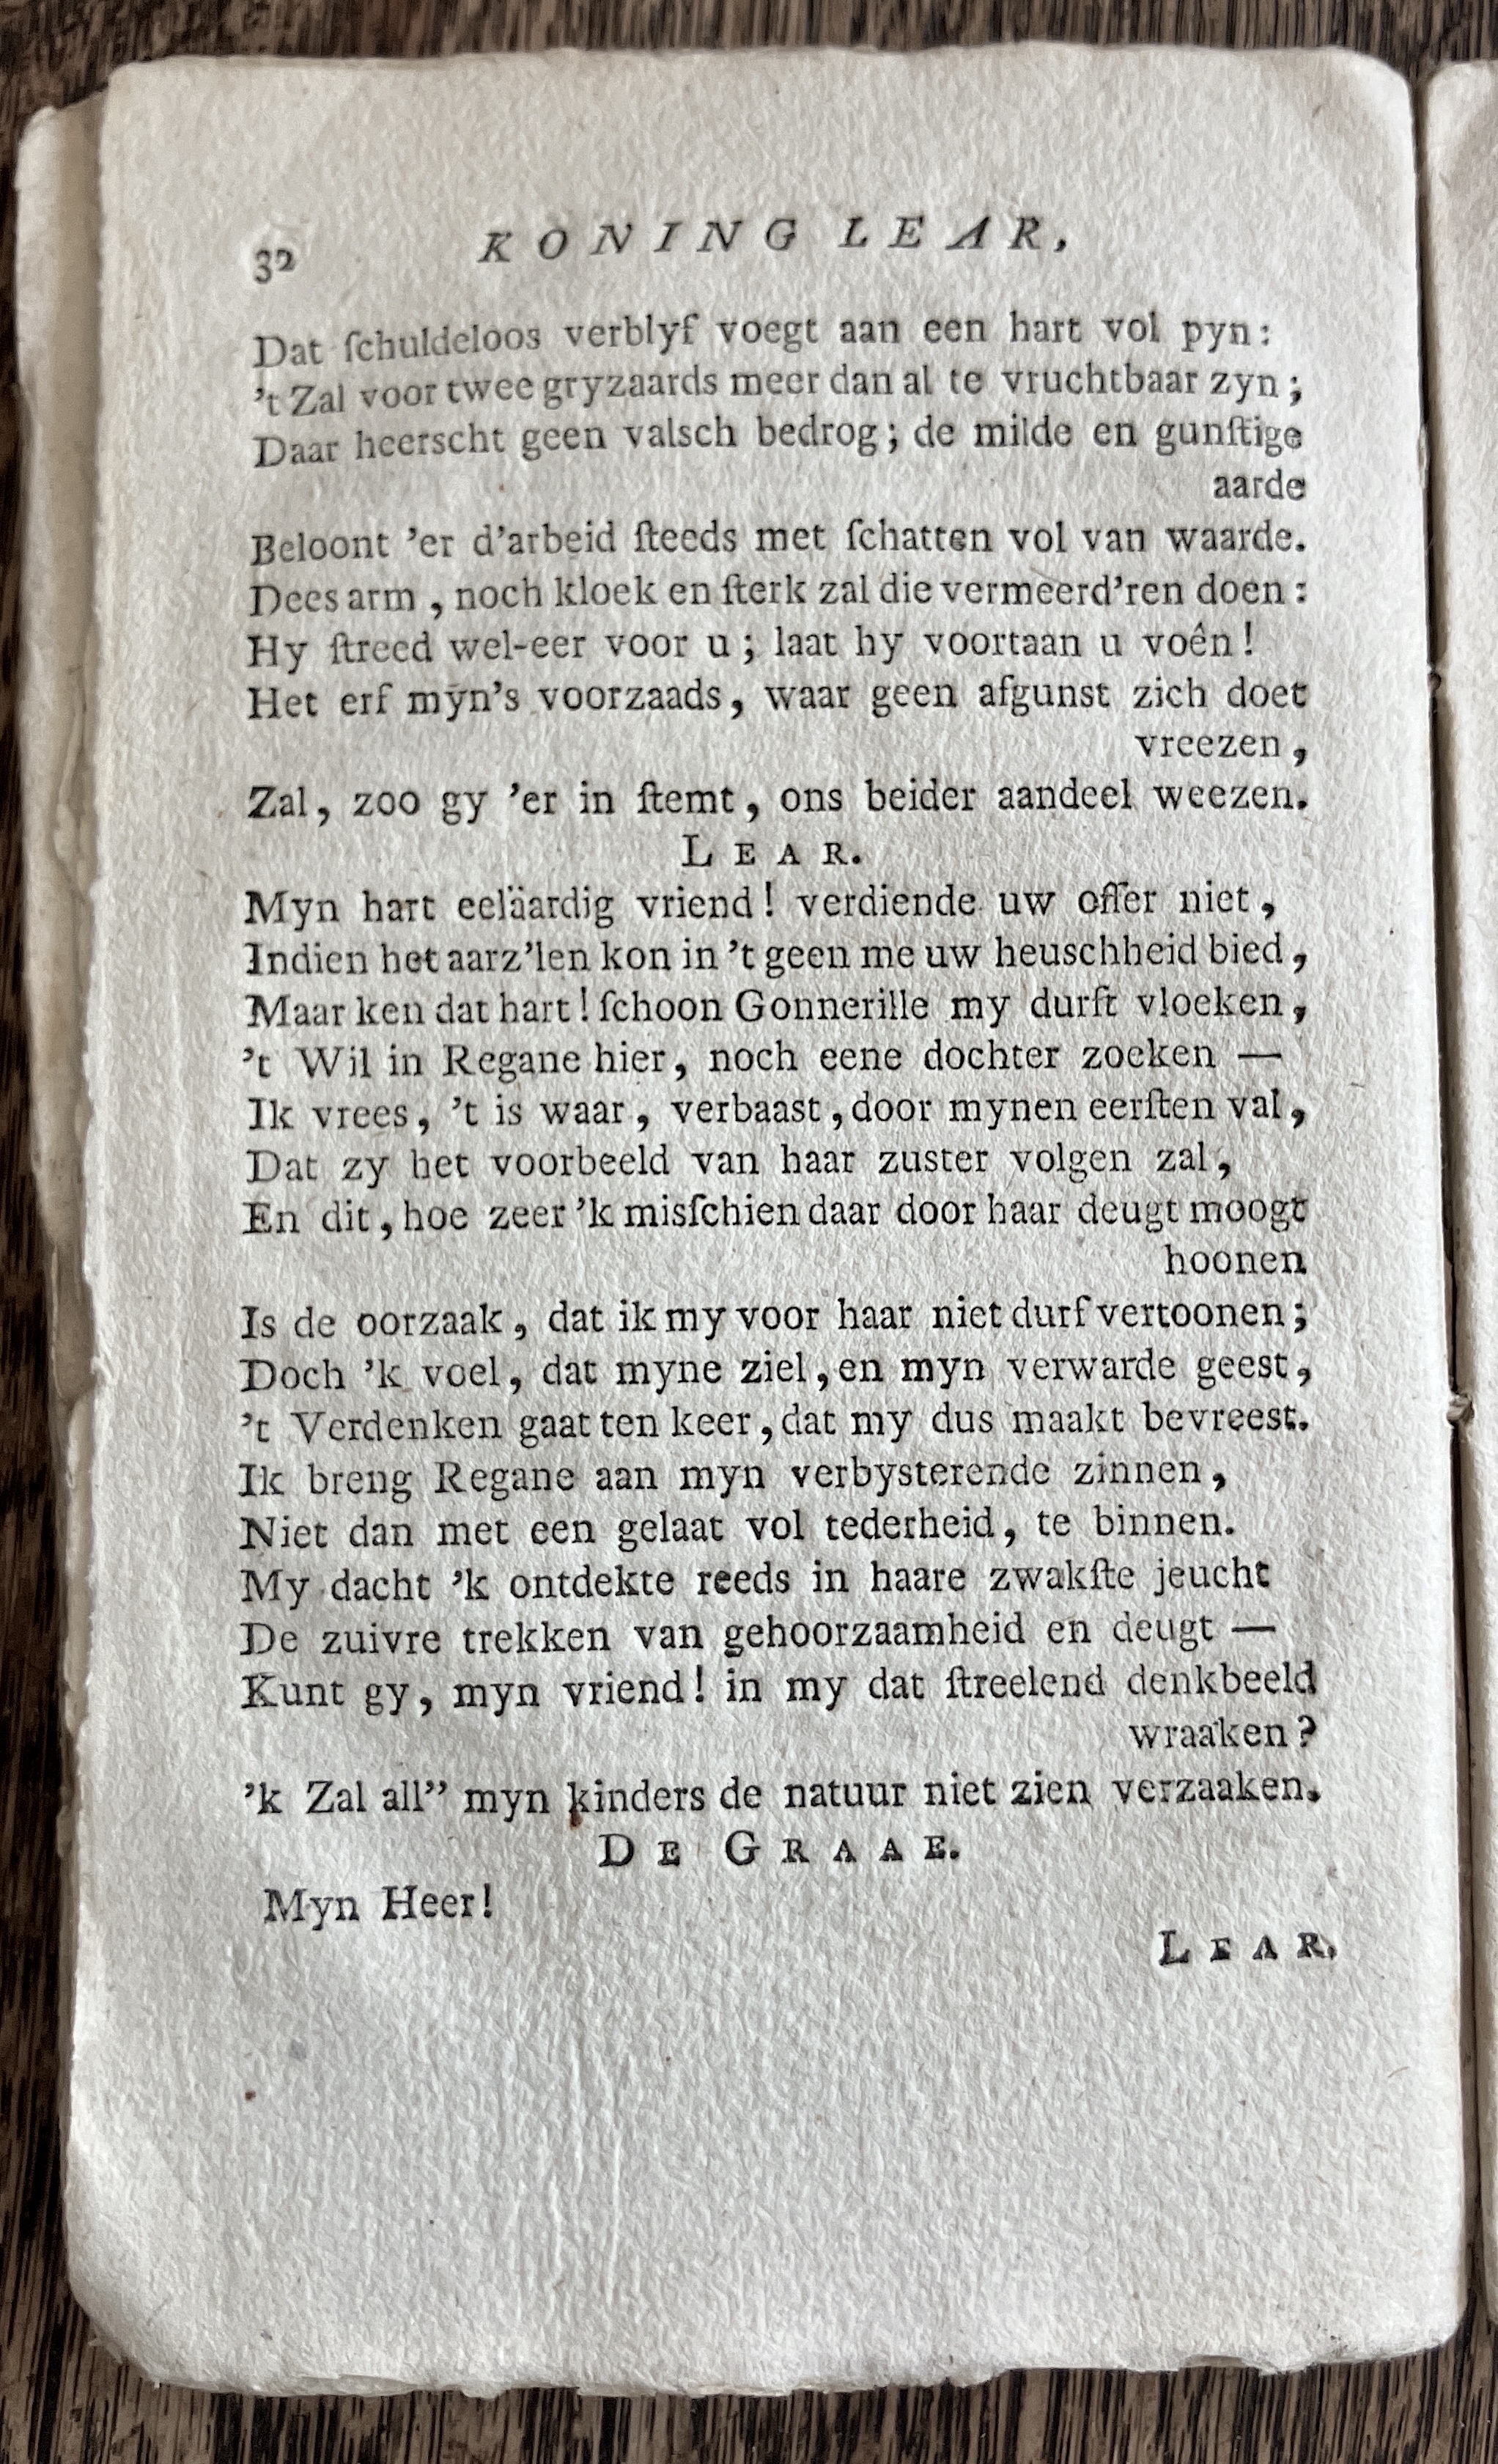 32 KONING LEAR,
Dat ſchuldeloos verblyf voegt aan een hart vol pyn:
't Zal voor twee gryzaards meer dan al te vruchtbaar zyn;
Daar heerscht geen valsch bedrog; de milde en gunſtige
aarde
Beloont 'er d'arbeid ſteeds met ſchatten vol van waarde.
Dees arm, noch kloek en ſterk zal die vermeerd'ren doen:
Hy ſtreed wel-eer voor u; laat hy voortaan u voên!
Het erf myn's voorzaads, waar geen afgunst zich doet
vreezen,
Zal, zoo gy 'er in ſtemt, ons beider aandeel weezen.
LEAR.
Myn hart eeläardig vriend! verdiende uw offer niet,
Indien het aarz'len kon in 't geen me uw heuschheid bied,
Maar ken dat hart! ſchoon Gonnerille my durft vloeken,
't Wil in Regane hier, noch eene dochter zoeken —
Ik vrees, 't is waar, verbaast, door mynen eerſten val,
Dat zy het voorbeeld van haar zuster volgen zal,
En dit, hoe zeer 'k misſchien daar door haar deugt moogt
hoonen
Is de oorzaak, dat ik my voor haar niet durf vertoonen;
Doch 'k voel, dat myne ziel, en myn verwarde geest,
't Verdenken gaat ten keer, dat my dus maakt bevreest.
Ik breng Regane aan myn verbysterende zinnen,
Niet dan met een gelaat vol tederheid, te binnen.
My dacht 'k ontdekte reeds in haare zwakſte jeucht
De zuivre trekken van gehoorzaamheid en deugt —
Kunt gy, myn vriend! in my dat ſtreelend denkbeeld
wraaken?
'k Zal all'' myn kinders de natuur niet zien verzaaken.
DE GRAAE.
Myn Heer!
LEAR.